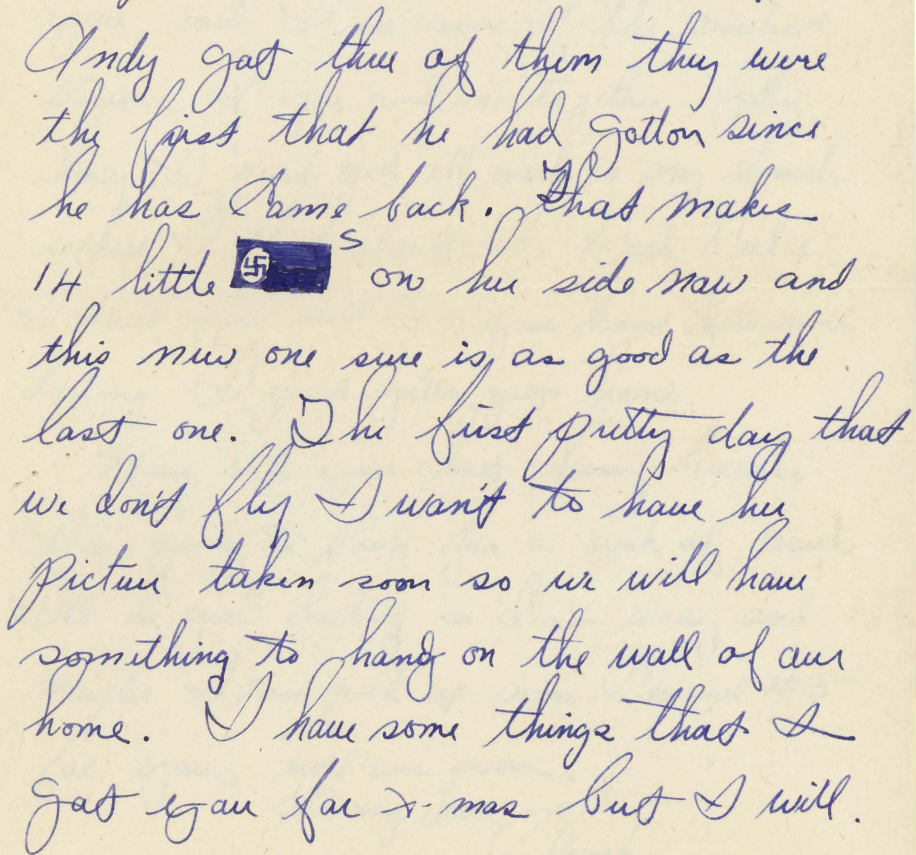 Andy got three of them they were
the first that he had gotton since
he has came back. That makes
14 little 卐 s on her side now and
this new one sure is as good as the
last one. The first pretty day that
we don't fly I wan't to have her
picture taken soon so we will have
something to hang on the wall of our
home. I have some things that I
got you for x-mas but I will.